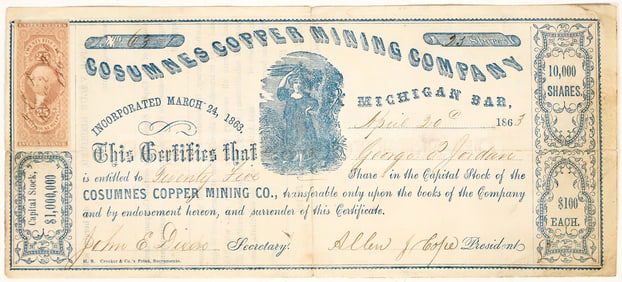 No. 63
25 Shares
COSUMNES COPPER MINING COMPANY
INCORPORATED MARCH 24, 1863.
MICHIGAN BAR,
April 20th 1863
This Certifies that George P. Jordan
is entitled to Twenty Five Share in the Capital Stock of the
COSUMNES COPPER MINING CO., transferable only upon the books of the Company
and by endorsement hereon, and surrender of this Certificate.
John E Dixon Secretary. Allen J Cope President
H. S. Crocker & Co.'s Print, Sacramento.
Capital Stock,
$1,000,000
10,000
SHARES.
$100
EACH.
25